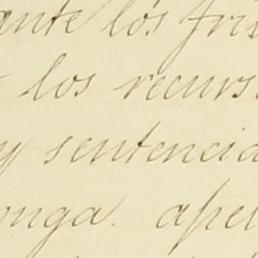 ante los tri
los recurs
y sentencia
onga. apel